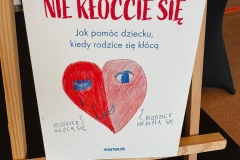 NIE KŁÓĆCIE SIĘ
Jak pomóc dziecku,
kiedy rodzice się kłócą
RODZICE
KŁÓCĄ SIĘ
RODZICE
NIE KŁÓCĄ SIĘ
sensus